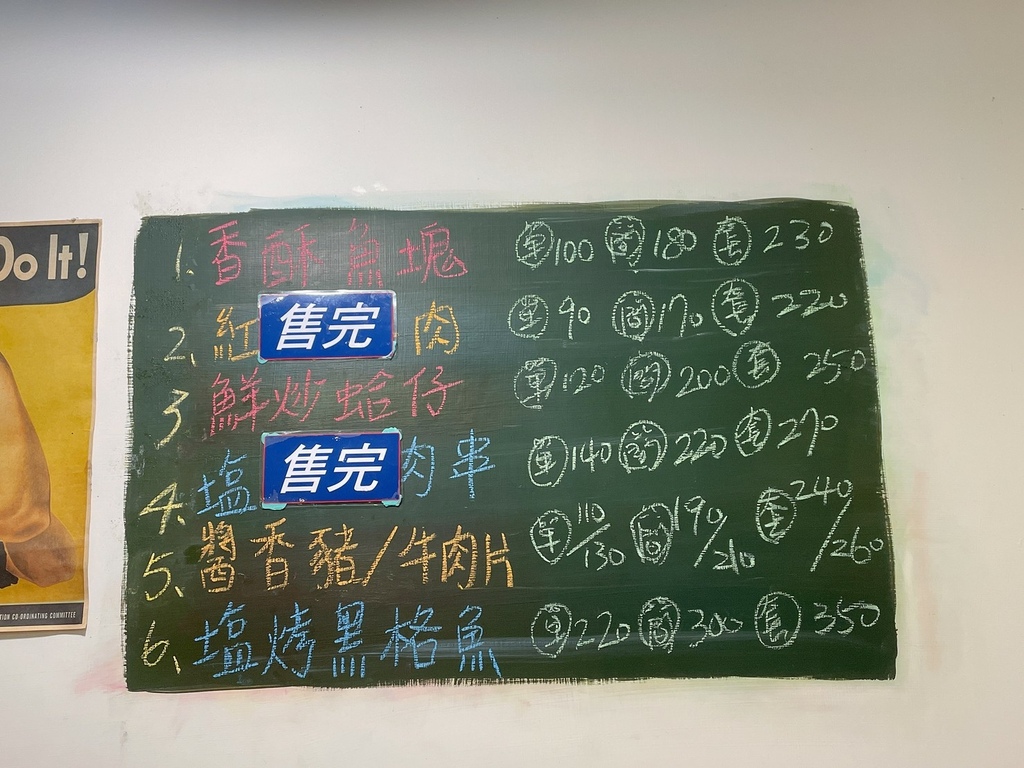 Do It!
ION CO-ORDINATING COMMITTEE
1. 香酥魚塊 單100 簡180 套230
2. 紅 售完 肉 單90 簡170 套220
3 鮮炒蛤仔 單120 簡200 套250
4. 塩 售完 肉串 單140 簡220 套270
5. 醬香豬/牛肉片 單110/130 簡190/210 套240/260
6. 塩烤黑格魚 單220 簡300 套350